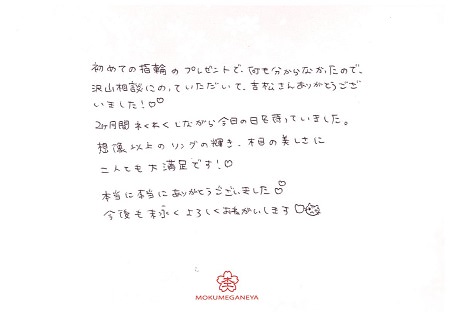 初めての指輪のプレゼントで、何も分からなかったので、
沢山相談にのっていただいて、吉松さんありがとうござ
いました!♡♡
2ヶ月間わくわくしながら今日の日を待っていました。
想像以上のリングの輝き、木目の美しさに
二人とも大満足です!♡
本当に本当にありがとうございました♡
今後も末永くよろしくおねがいします♡
MOKUMEGANEYA